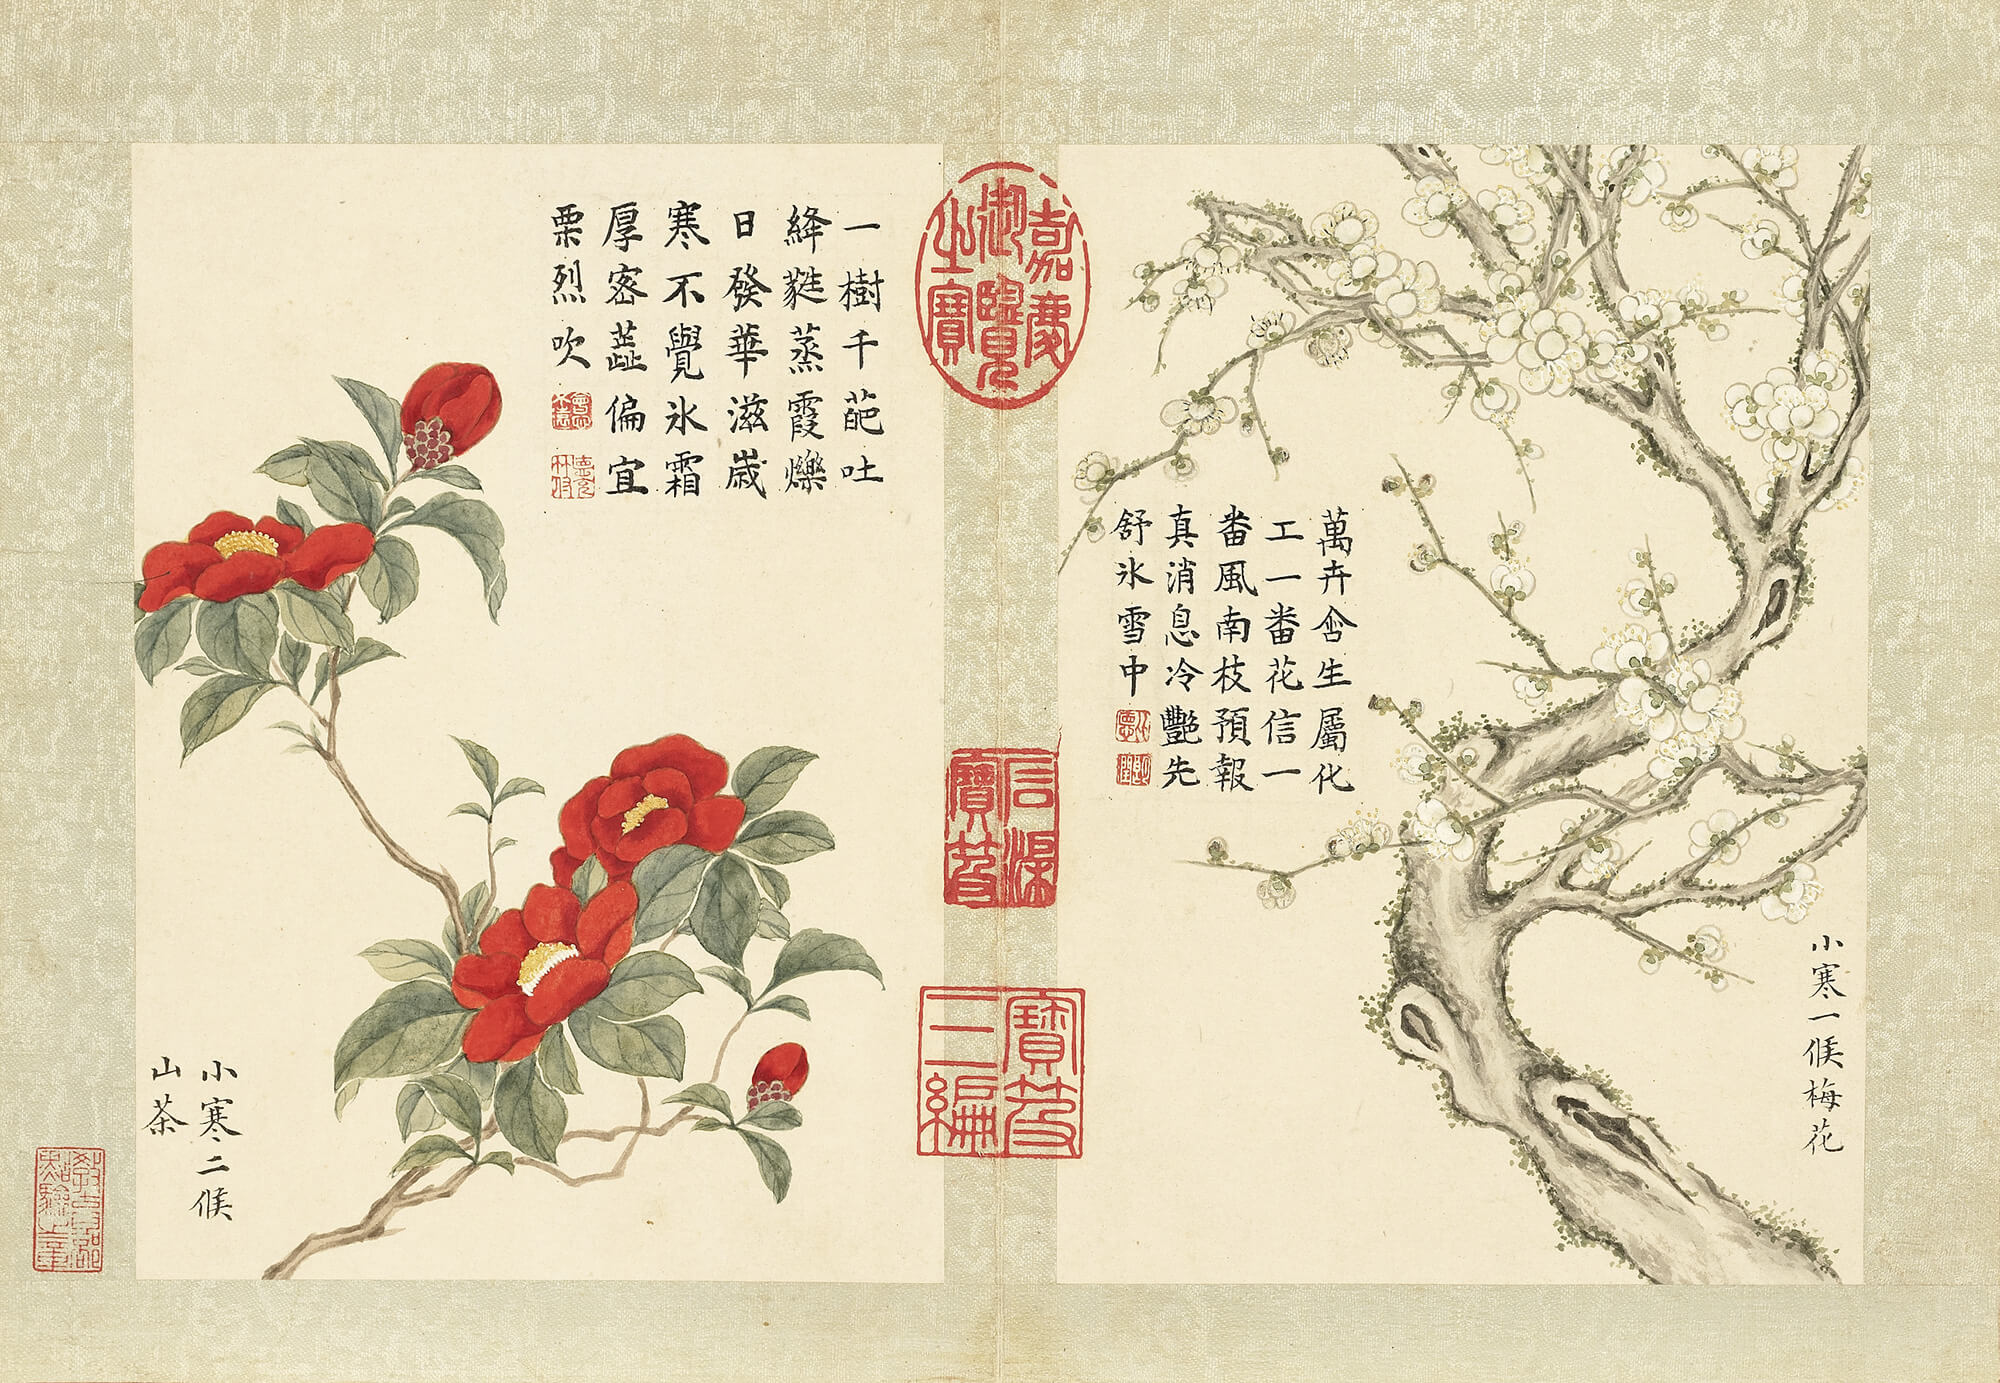 小寒一候梅花
萬卉含生屬化
工一番花信一
番風南枝預報
真消息冷豔先
舒氷雪中
嘉慶御覽之寶
石渠寶笈
寶笈三編
一樹千葩吐
絳蕤蒸霞爍
日發華滋歲
寒不覺氷霜
厚密蕋偏宜
栗烈吹
會心不遠
德充符
小寒二候
山茶